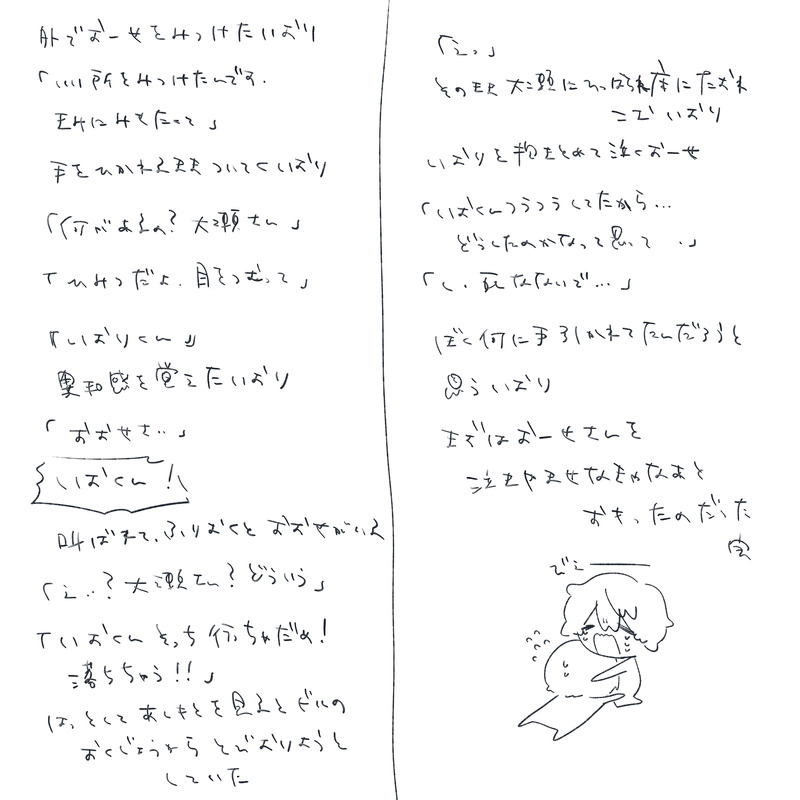 外でおーせをみつけたいばり
「いい所をみつけたんです.
君にみせたくて」
手をひかれるままついてくいばり
「何があるの？大瀬さん」
「ひみつだよ.目をつむって」
『いばりくん』
違和感を覚えたいばり
「おおせさ..」
いおくん！！
叫ばれて、ふりむくとおおせがいる
「え..？大瀬さん？どういう」
「いおくんそっち行っちゃだめ！
落ちちゃう!!」
はっとしてあしもとを見るとビルの
おくじょうからとびおりようと
していた
「えっ」
そのまま大瀬にひっぱられ床にたおれ
こむいばり
いばりを抱きとめて泣くおーせ
「いおくんつらつらしてたから…
どうしたのかなって思って..」
「し.死なないで…」
ぼく何に手引かれてたんだろうと
思ういばり
まずはおーせさんを
泣きやませなきゃなあと
おもったのだった
完
びえーー